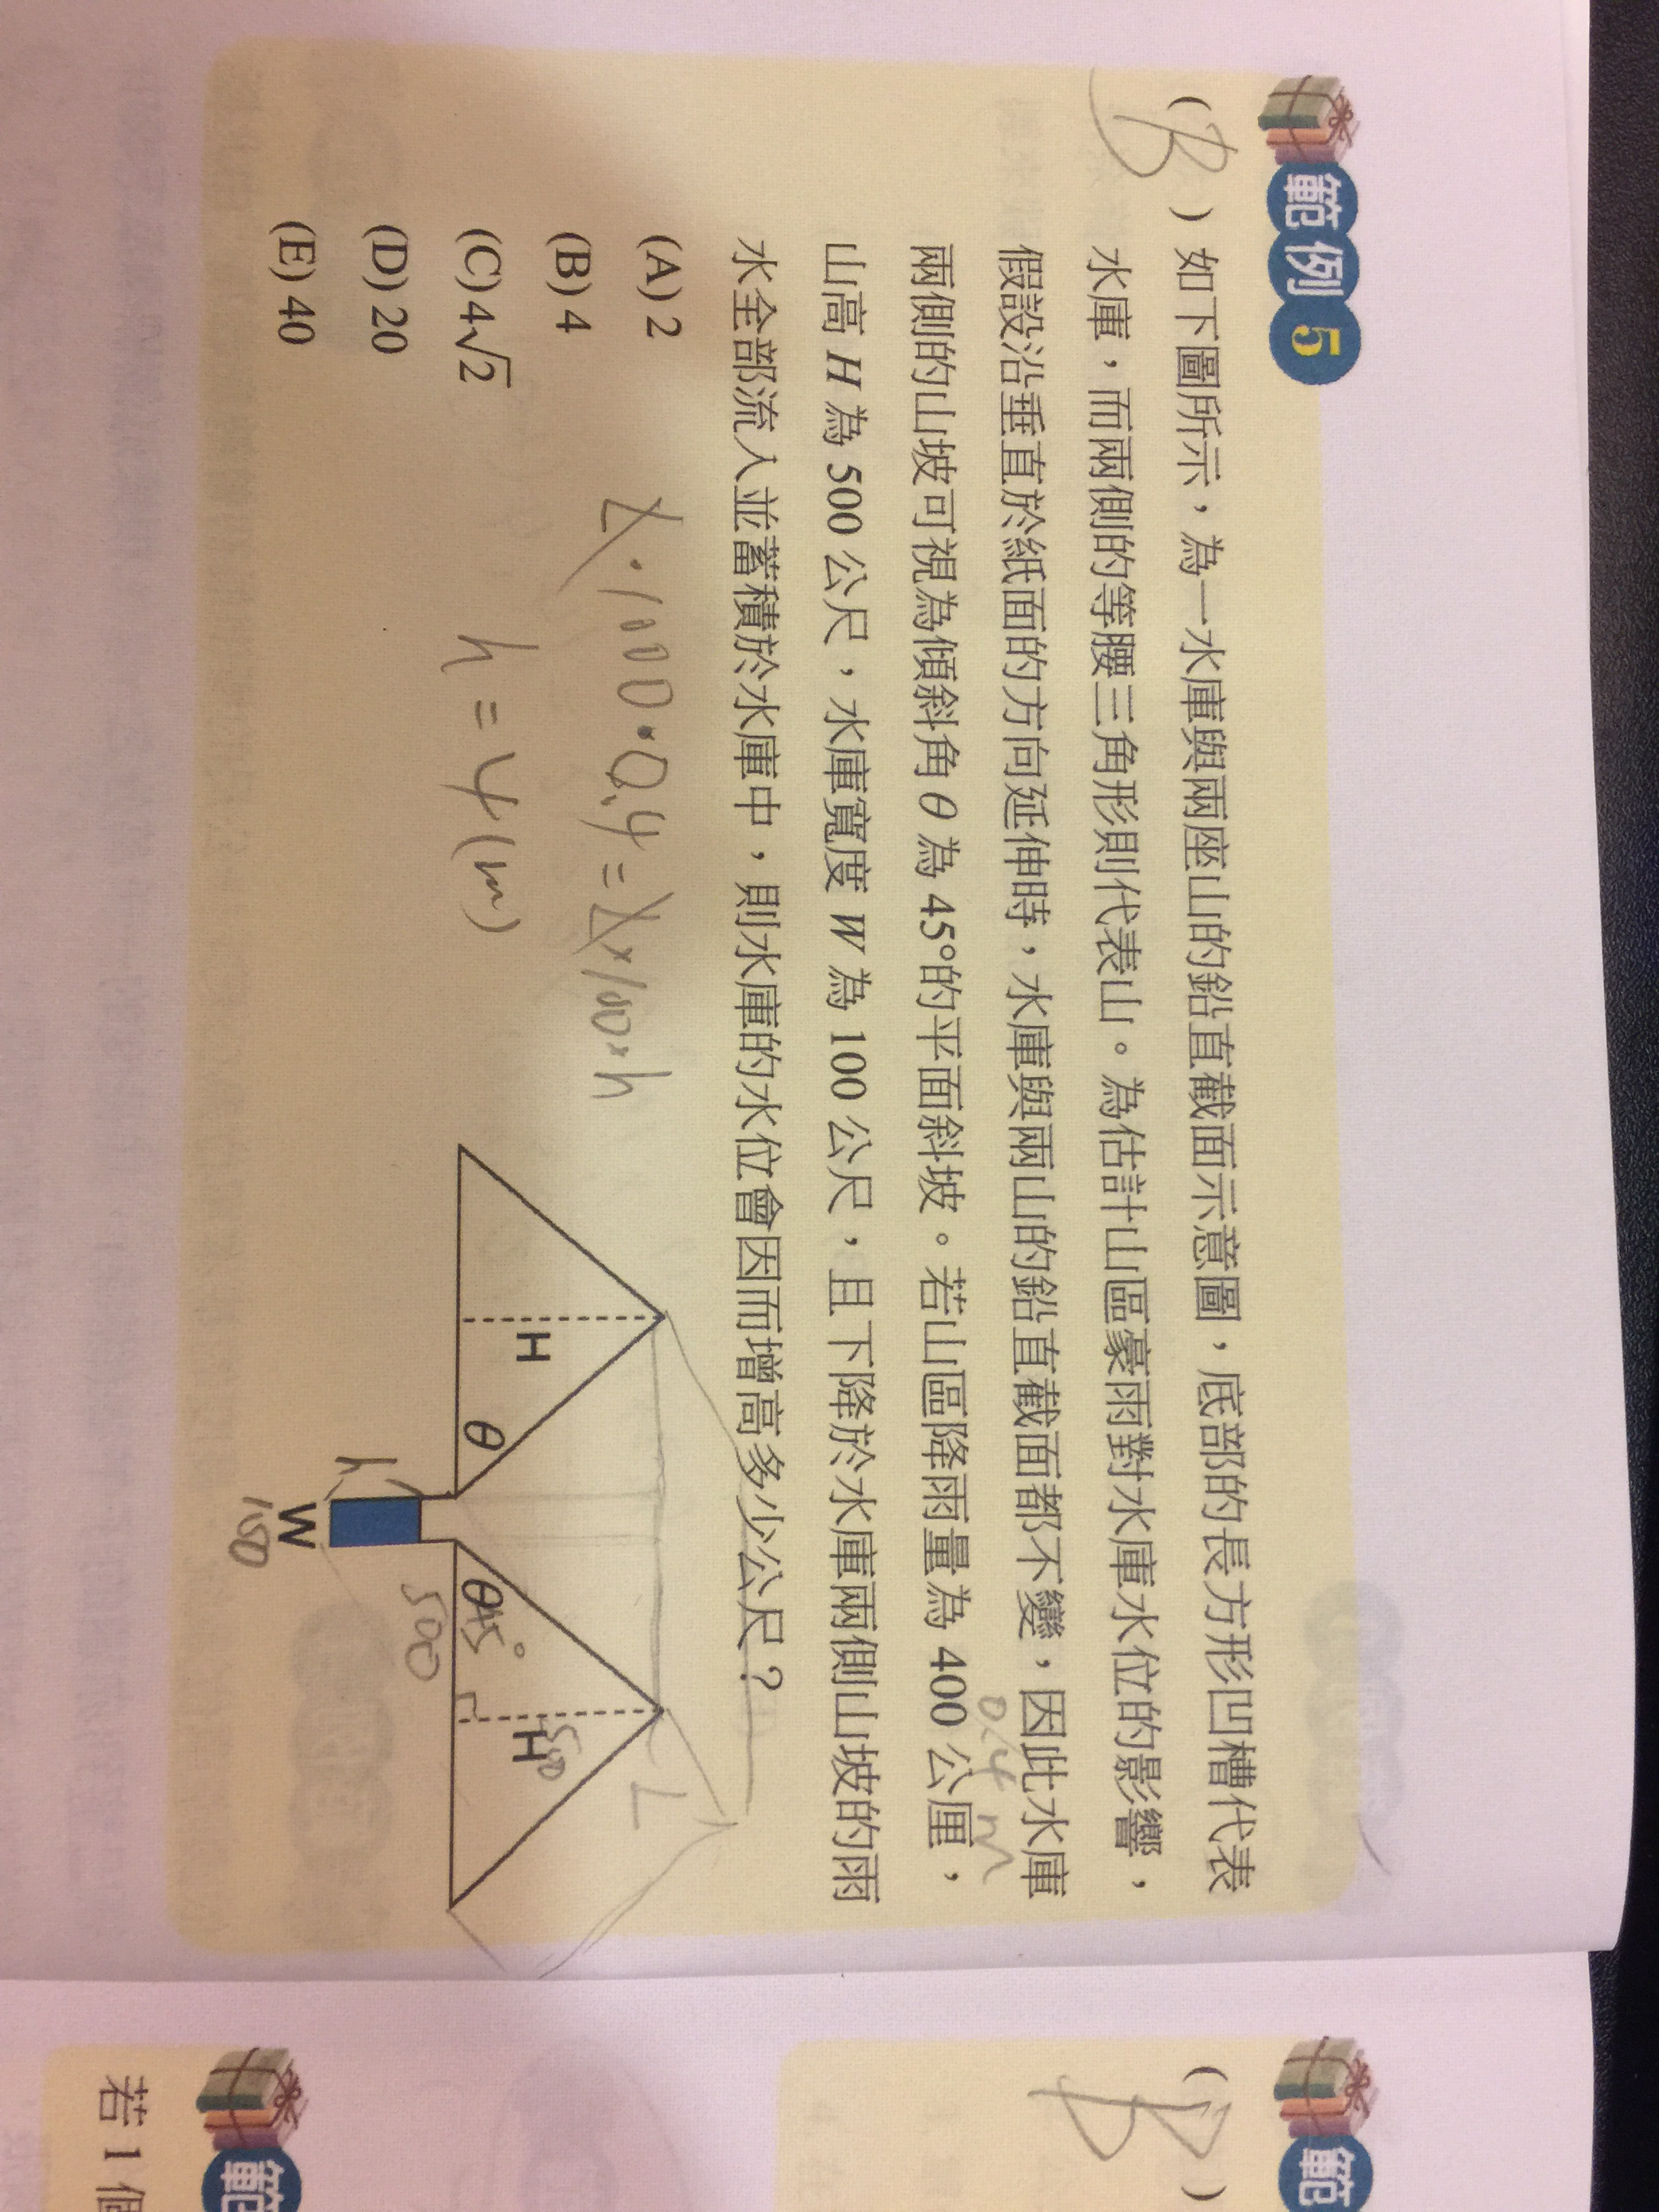 範例5
( B ) 如下圖所示，為一水庫與兩座山的鉛直截面示意圖，底部的長方形凹槽代表
水庫，而兩側的等腰三角形則代表山。為估計山區豪雨對水庫水位的影響，
假設沿垂直於紙面的方向延伸時，水庫與兩山的鉛直截面都不變，因此水庫
兩側的山坡可視為傾斜角θ為45°的平面斜坡。若山區降雨量為400公厘，
0.4 m
山高H為500公尺，水庫寬度W為100公尺，且下降於水庫兩側山坡的雨
水全部流入並蓄積於水庫中，則水庫的水位會因而增高多少公尺？
(A) 2
(B) 4
(C) 4√2
(D) 20
(E) 40
L·1000·0.4=L×100×h
h=4(m)
L
H
θ
θ45°
H
500
500
h
W
100
範
( B )
範
若1個